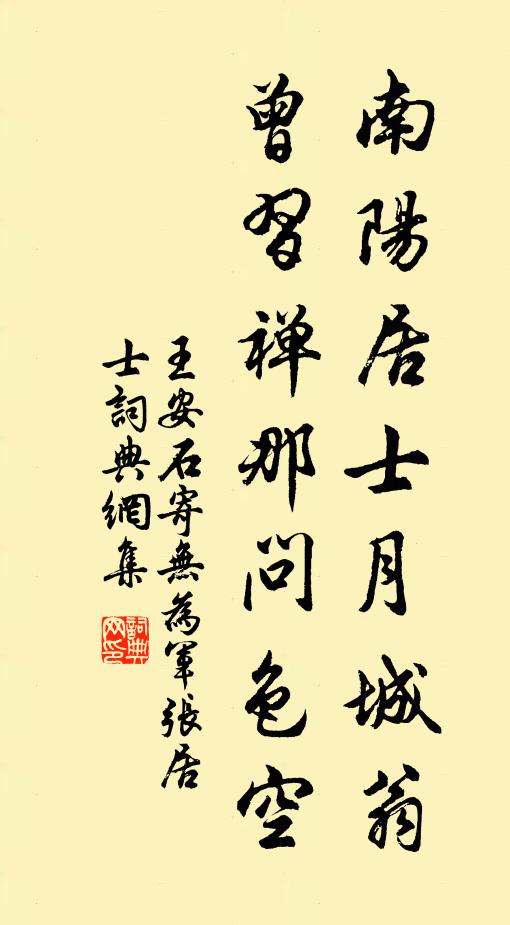 南陽居士月城翁
曾習禅那問色空
王安石寄無為軍張居
士詞典網集
詞典
网印